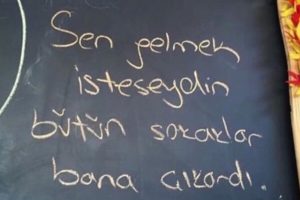 Sen gelmek
isteseydin
bütün sokaklar
bana çıkardı.